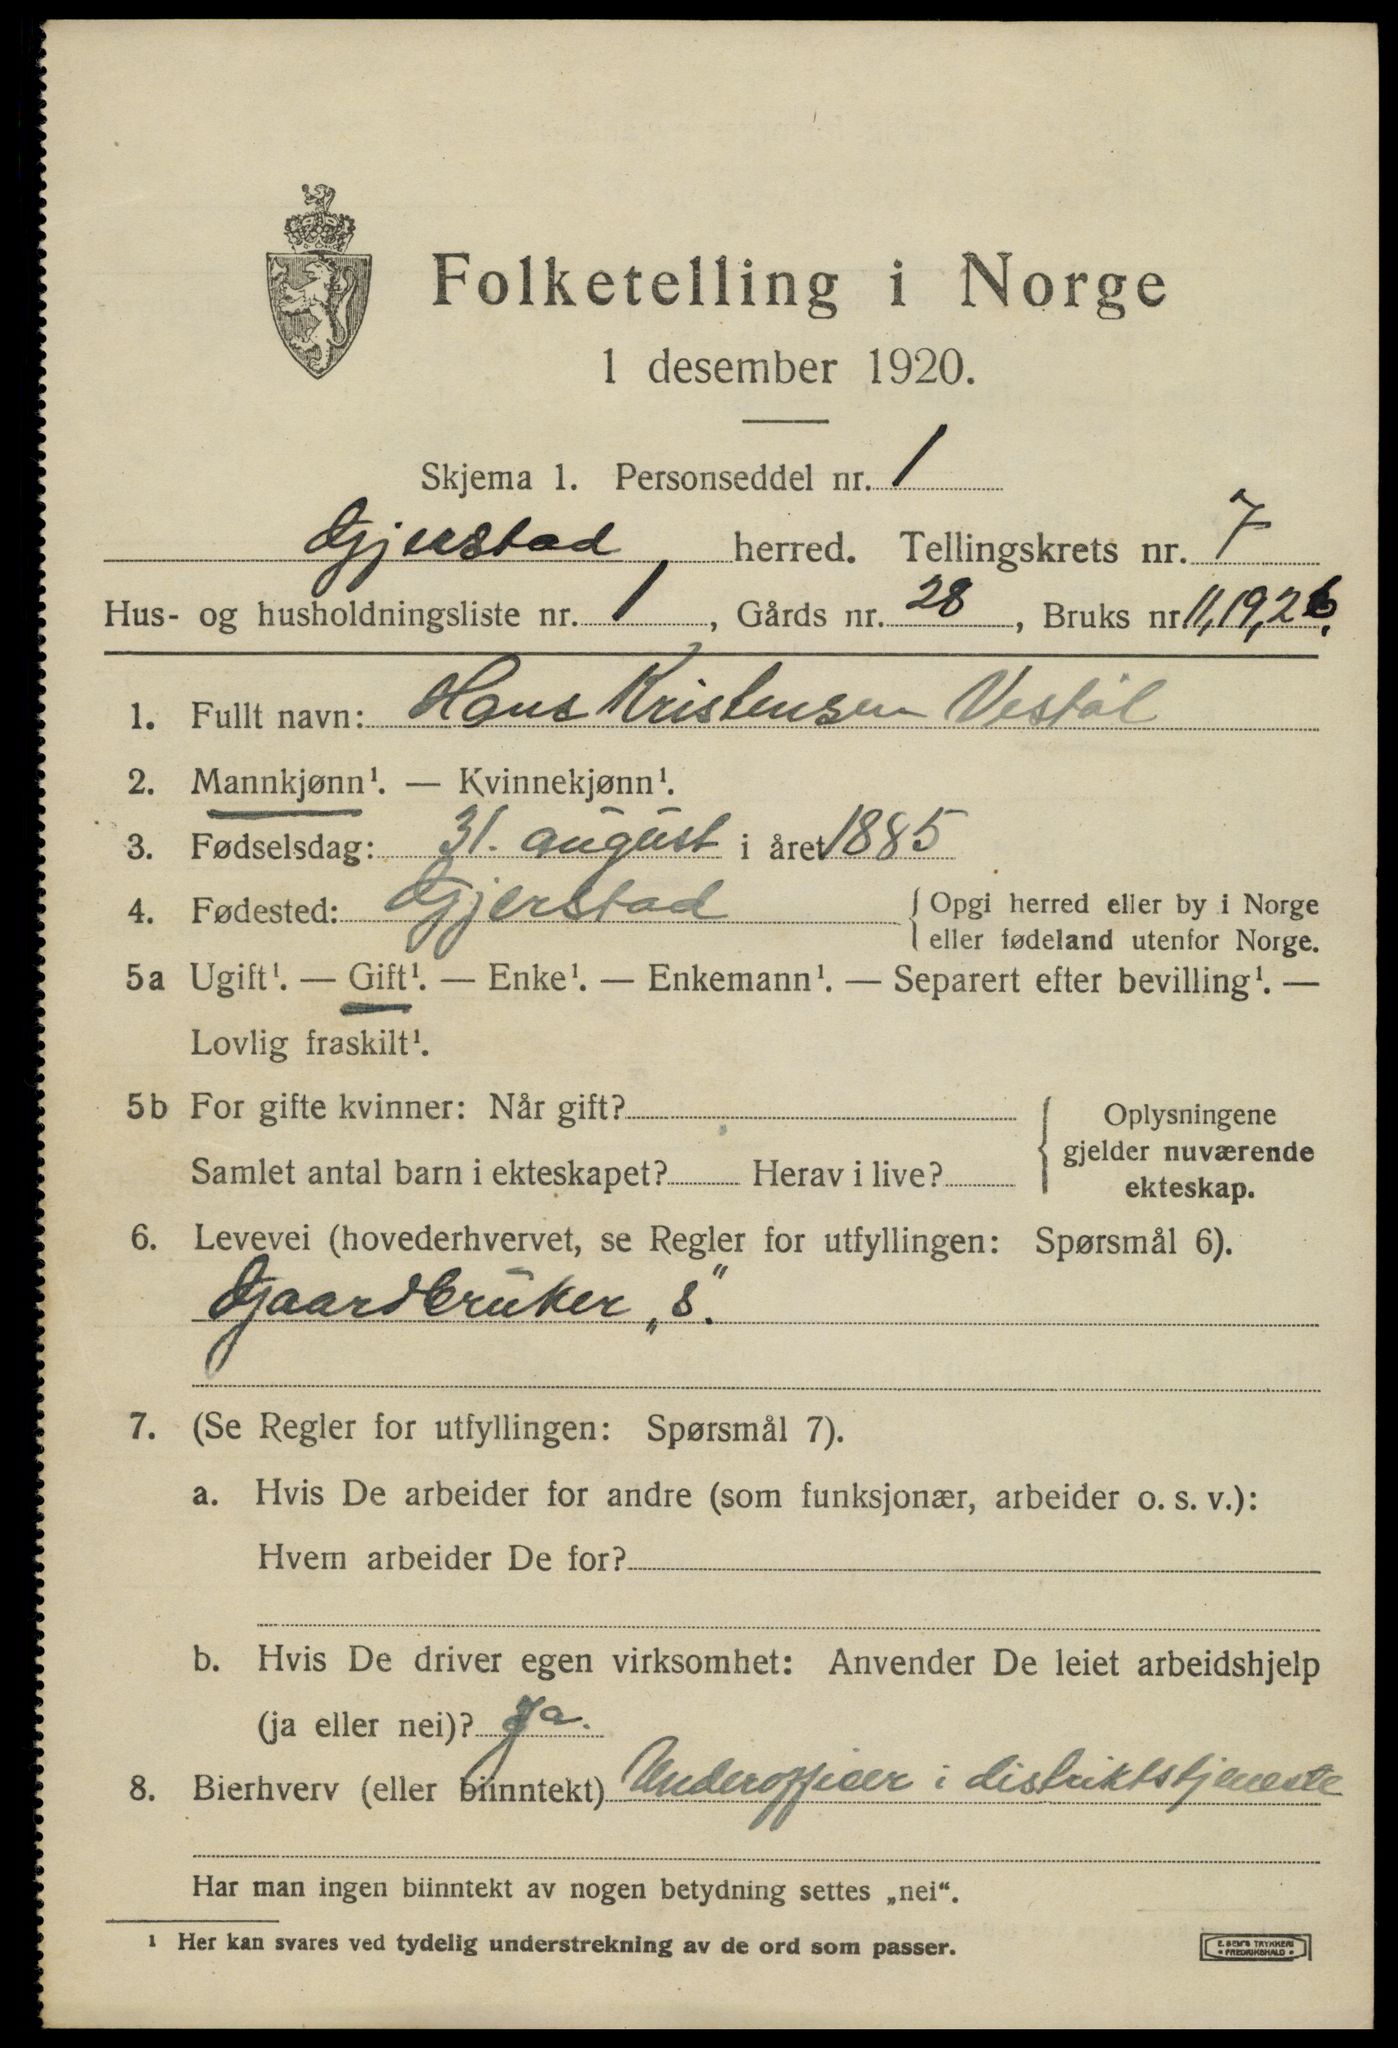 Folketelling i Norge
1 desember 1920.
Skjema 1. Personseddel nr. 1
Gjerstad herred. Tellingskrets nr. 7
Hus- og husholdningsliste nr. 1, Gårds nr. 28, Bruks nr 11, 19, 26.
1. Fullt navn: Hans Kristensen Vestøl
2. Mannkjønn¹. — Kvinnekjønn¹.
3. Fødselsdag: 31. august i året 1885
4. Fødested: Gjerstad { Opgi herred eller by i Norge
eller fødeland utenfor Norge.
5a Ugift¹. — Gift¹. — Enke¹. — Enkemann¹. — Separert efter bevilling¹. —
Lovlig fraskilt¹.
5b For gifte kvinner: Når gift?
Samlet antal barn i ekteskapet? Herav i live?
{ Oplysningene
gjelder nuværende
ekteskap.
6. Levevei (hovederhvervet, se Regler for utfyllingen: Spørsmål 6).
Gaardbruker „s“.
7. (Se Regler for utfyllingen: Spørsmål 7).
a. Hvis De arbeider for andre (som funksjonær, arbeider o. s. v.):
Hvem arbeider De for?
b. Hvis De driver egen virksomhet: Anvender De leiet arbeidshjelp
(ja eller nei)? Ja.
8. Bierhverv (eller biinntekt) Underofficer i distriktstjeneste
Har man ingen biinntekt av nogen betydning settes „nei“.
¹ Her kan svares ved tydelig understrekning av de ord som passer.
E. SEM'S TRYKKERI
• FREDRIKSHALD •